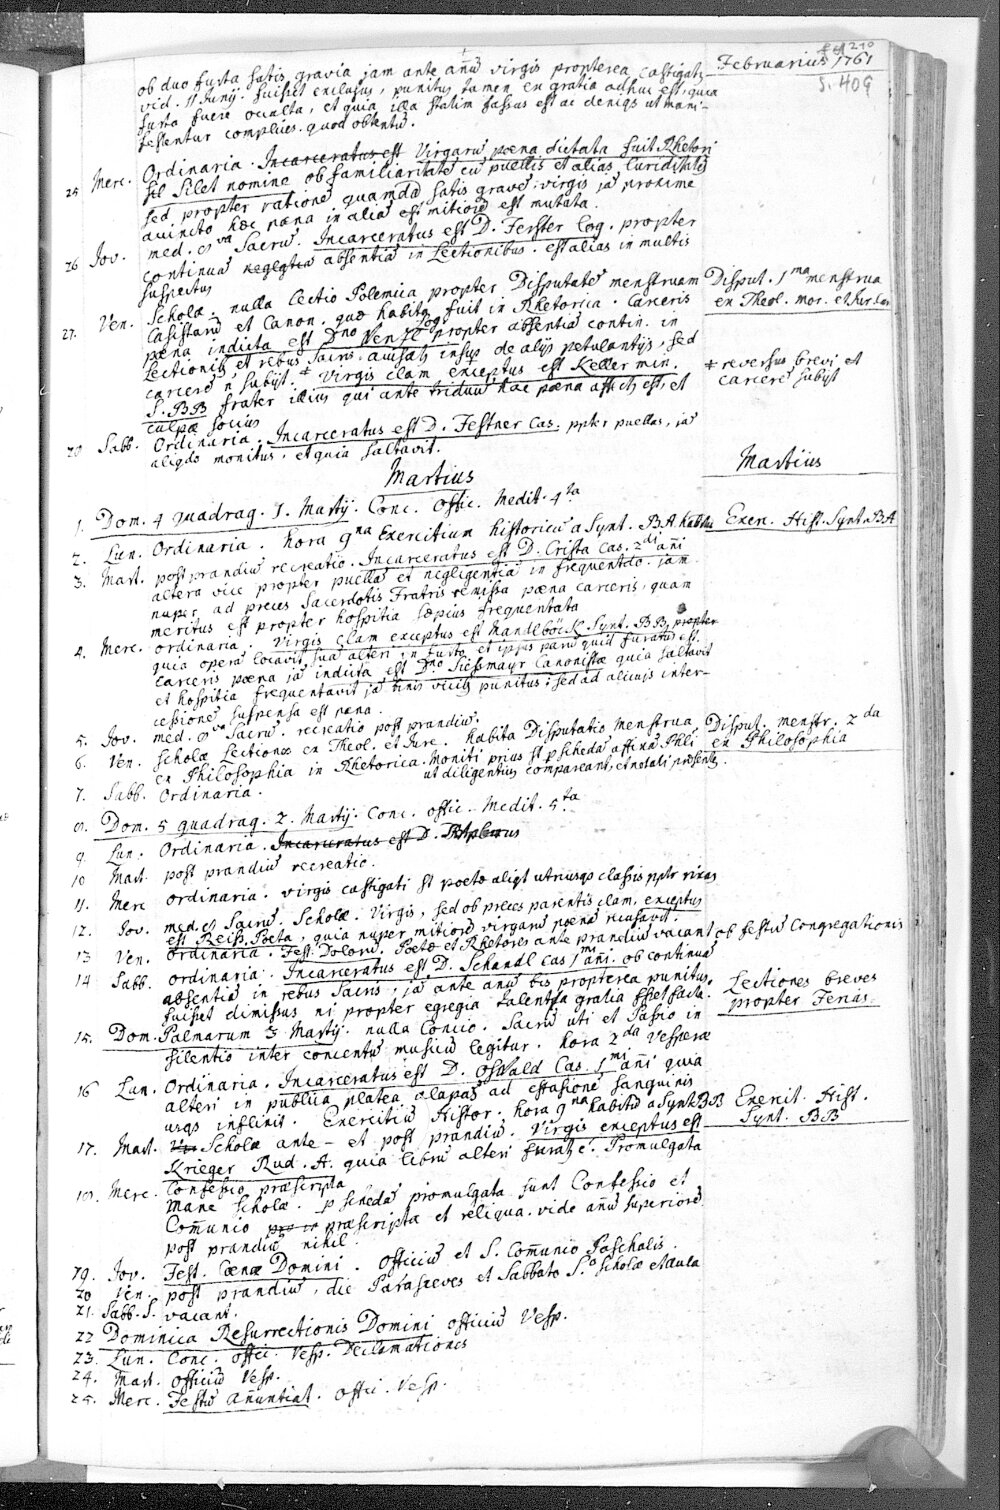 Februarius 1761
S. 409
ob duo furta satis gravia jam ante añũ virgis propterea castigatq
vid. 11 Junij. fuisset exclusus, punitus tamen ex gratia adhuc est, quia
furta fuere occulta, et quia illa statim fassus est ac deniqs ut mani-
festentur complices. quod obtentũ.
25 Merc. Ordinaria. Incarceratus est Virgarũ pœna dictata fuit Rhetori
Silet nomine ob familiaritatẽ cũ puellis et alias
sed propter rationẽ quamdã satis gravẽ virgis jã proxime
hæc pœna in aliã est mitiorẽ est mutata.
26 Jov. med. 8va Sacrũ. Incarceratus est D. Ferster Log. propter
continuã neglgtia absentiã in Lectionibus. est alias in multis
suspectus
27. Ven. Scholæ. nulla lectio Polemica propter Disputatẽ menstruam
Casistarũ et Canon. quæ habita fuit in Rhetorica. Carceris
pœna indicta est Dno Venzl Log. propter absentiã contin. in
Lectionib et rebus Sacris. insup de alijs petulantijs, sed
carcerẽ ñ subijt. ‡ Virgis clam exceptus est Keller min.
S. BB frater illius qui ante triduũ hac pœna affectq est, et
culpæ socius
Disput. 1ma menstrua
ex Theol. mor. et Jur. Can
‡ reversus brevi et
carcerẽ subijt
28 Sabb. Ordinaria. Incarceratus est D. Festner Cas. ppter puellas, jã
aliqdo monitus, et quia saltavit.
Martius
Martius
1. Dom. 4 quadrag. 1. Martij. Conc. Offic. Medit. 4ta
2. Lun. Ordinaria. hora 9na Exercitium historicũ a Synt. BA habitũ
Exerc. Hist. Synt. BA
3. Mart. post prandiũ recreatio. Incarceratus est D. Crista Cas. 2di añi
altera vice propter puellã et negligentiã in frequentdo. jam
nuper ad preces Sacerdotis Fratris remissa pœna carceris, quam
meritus est propter hospitia sæpius frequentata
4. Merc. ordinaria. Virgis clam exceptus est Mandlböck Synt. BB, propter
quia operã locavit suã alteri in furto et ipsus parũ quid furatũ est.
carceris pœna jã indicta est Dno Siessmayr Canonistæ quia saltavit
et hospitia frequentavit jã binis vicib punitus: sed ad alicujs inter-
cessionẽ suspensa est pœna.
5. Jov. med. 8va Sacrũ. recreatio post prandiũ.
6. Ven. Scholæ Lectiones ex Theol. et Jure. habita Disputatio menstrua
ex Philosophia in Rhetorica. Moniti prius st p schedã affixã Phli
ut diligentius compareant, et notati præsentes.
Disput. menstr. 2da
ex Philosophia
7. Sabb. Ordinaria.
8. Dom. 5 quadrag. 2. Martij. Conc. offic. Medit. 5ta
9 Lun. Ordinaria. Incarceratus est D.
10 Mart. post prandiũ recreatio.
11. Merc ordinaria. virgis castigati st poetæ aliqt utriusqs classis pptr rixas
12. Jov. med. et Sacrũ. Scholæ. Virgis, sed ob preces parentis clam, exceptus
est Reiss. Poeta, quia nuper mitiorẽ virgarũ pœnã recusavit.
13 Ven. ordinaria. Fest. Dolorũ. Poetæ et Rhetores ante prandiũ vacant ob festũ Congregationis
14 Sabb. ordinaria. Incarceratus est D. Schandl Cas 1 añi. ob continuã
absentiã in rebus Sacris, jã ante añũ bis propterea punitus.
fuisset dimissus ni propter egregia talenta gratia esset facta.
Lectiones breves
propter Ferias.
15. Dom. Palmarum 3 Martij. nulla Concio. Sacrũ uti et Passio in
silentio inter concentũ musicũ legitur. hora 2da Vesperæ
16 Lun. Ordinaria. Incarceratus est D. Oswald Cas. 1mi añi quia
alteri in publica platea alapas ad effusionẽ sanguinis
usqs inflixit. Exercitiũ Histor. hora 9na habitũ a Synt. BB
Exercit. Hist.
Synt. BB
17. Mart. Scholæ ante - et post prandiũ. Virgis exceptus est
Krieger Rud. A. quia librũ alteri furatq ẽ. Promulgata
Confessio præscripta
18. Merc. mane scholæ. p schedã promulgata sunt Confessio et
Com̃unio præscripta et reliqua. vide añũ superiorẽ
post prandiũ nihil.
19. Jov. Fest. Cœnæ Domini. officiũ et S. Com̃unio Paschalis.
20 Ven. post prandiũ, die Parasceves et Sabbato So Scholæ et aula
21. Sabb. S. vacant.
22 Dominica Resurrectionis Domini officiũ Vesp.
23. Lun. Conc. offic. Vesp. Declamationes
24. Mart. officiũ Vesp.
25. Merc. Festũ Añuntiat. offic. Vesp.